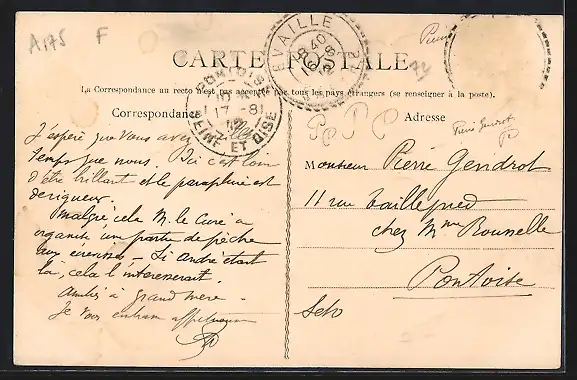 A175 F
CARTE POSTALE
EVAILLE
18 40
16 -8
12
72
La Correspondance au recto n'est pas acceptée par tous les pays étrangers (se renseigner à la poste).
PONTOISE
17 -8
12
SEINE ET OISE
Correspondance
J'espère que vous avez
temps que nous. Ici c'est loin
d'être brillant et le parapluie est
de rigueur.
Malgré cela M. le Curé a
organisé une partie de pêche
aux écrevisses. Si André était
là, cela l'intéresserait.
Amitiés à grand mère.
Je vous embrasse affectueusement
Adresse
Pierre Gendrot
Monsieur Pierre Gendrot
11 rue Taillepied
chez Mme Rousselle
Pontoise
Seto